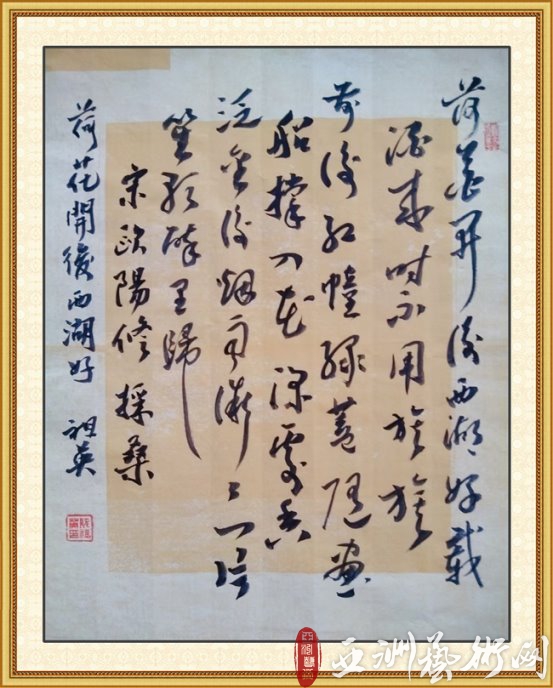 荷花开後西湖好載
酒来时不用旌旗
前後红幢绿盖随画
船撑入花深處香
泛金卮烟雨微々一片
笙歌醉里歸
宋欧陽修採桑
荷花開後西湖好 祖英
亚洲藝術网